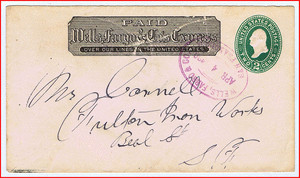 PAID
Wells Fargo & Co's Express
OVER OUR LINES IN THE UNITED STATES.
UNITED STATES POSTAGE
TWO 2 CENTS
WELLS, FARGO & CO
APR
4
Mr Connell
Fulton Iron Works
Beal St
S. F.